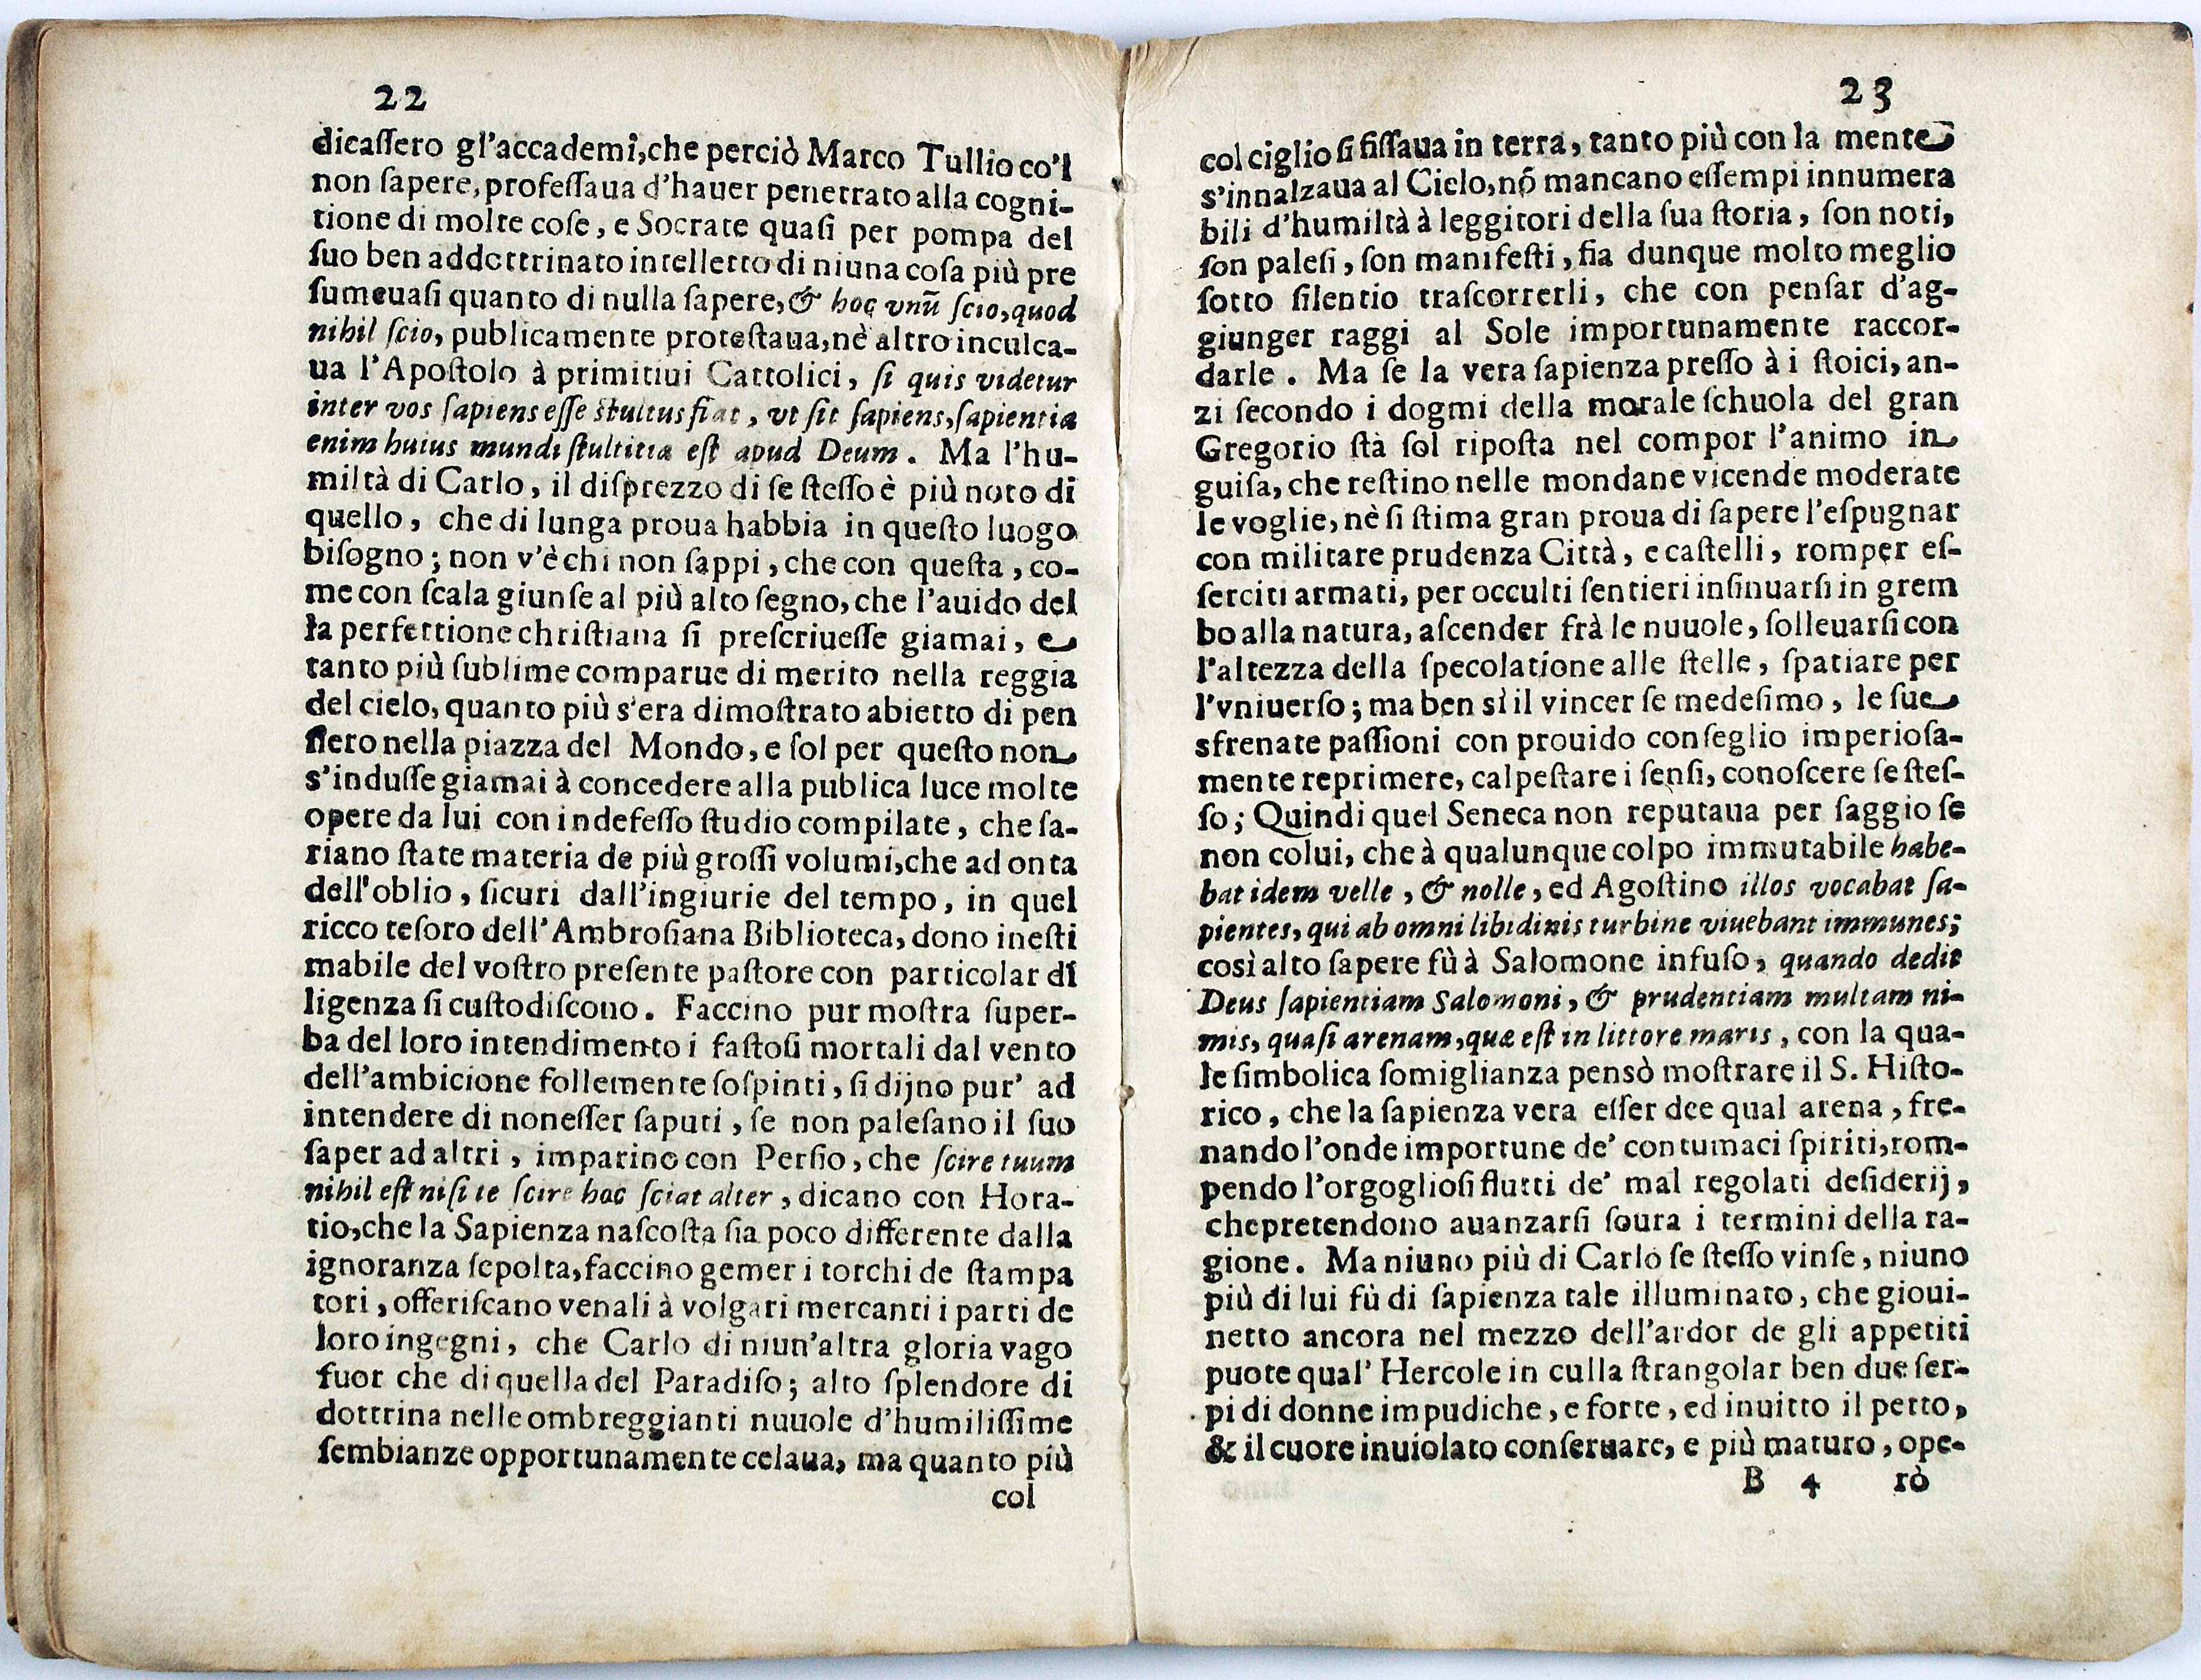 22
dicaſſero gl'accademi,che perciò Marco Tullio co'l
non ſapere, profeſſaua d'hauer penetrato alla cogni-
tione di molte coſe, e Socrate quaſi per pompa del
ſuo ben addottrinato intelletto di niuna coſa più pre
ſumeuaſi quanto di nulla ſapere, & hoc vnū ſcio, quod
nihil ſcio, publicamente proteſtaua, nè altro inculca-
ua l'Apoſtolo à primitiui Cattolici, ſi quis videtur
inter vos ſapiens eſſe ſtultus fiat, vt ſit ſapiens, ſapientia
enim huius mundi ſtultitia eſt apud Deum. Ma l'hu-
miltà di Carlo, il diſprezzo di ſe ſteſſo è più noto di
quello, che di lunga proua habbia in queſto luogo
biſogno; non v'è chi non ſappi, che con queſta, co-
me con ſcala giunſe al più alto ſegno, che l'auido del
la perfettione chriſtiana ſi preſcriueſſe giamai, e
tanto più ſublime comparue di merito nella reggia
del cielo, quanto più s'era dimoſtrato abietto di pen
ſiero nella piazza del Mondo, e ſol per queſto non
s'induſſe giamai à concedere alla publica luce molte
opere da lui con indefeſſo ſtudio compilate, che ſa-
riano ſtate materia de più groſſi volumi, che ad onta
dell'oblio, ſicuri dall'ingiurie del tempo, in quel
ricco teſoro dell'Ambroſiana Biblioteca, dono ineſti
mabile del voſtro preſente paſtore con particolar di
ligenza ſi cuſtodiſcono. Faccino pur moſtra ſuper-
ba del loro intendimento i faſtoſi mortali dal vento
dell'ambicione follemente ſoſpinti, ſi dijno pur' ad
intendere di non eſſer ſaputi, ſe non paleſano il ſuo
ſaper ad altri, imparino con Perſio, che ſcire tuum
nihil eſt niſi te ſcire hoc ſciat alter, dicano con Hora-
tio, che la Sapienza naſcoſta ſia poco differente dalla
ignoranza ſepolta, faccino gemer i torchi de ſtampa
tori, offeriſcano venali à volgari mercanti i parti de
loro ingegni, che Carlo di niun'altra gloria vago
fuor che di quella del Paradiſo; alto ſplendore di
dottrina nelle ombreggianti nuuole d'humiliſſime
ſembianze opportunamente celaua, ma quanto più
col
23
col ciglio ſi fiſſaua in terra, tanto più con la mente
s'innalzaua al Cielo, nō mancano eſſempi innumera
bili d'humiltà à leggitori della ſua ſtoria, ſon noti,
ſon paleſi, ſon manifeſti, fia dunque molto meglio
ſotto ſilentio traſcorrerli, che con penſar d'ag-
giunger raggi al Sole importunamente raccor-
darle. Ma ſe la vera ſapienza preſſo à i ſtoici, an-
zi ſecondo i dogmi della morale ſchuola del gran
Gregorio ſtà ſol ripoſta nel compor l'animo in
guiſa, che reſtino nelle mondane vicende moderate
le voglie, nè ſi ſtima gran proua di ſapere l'eſpugnar
con militare prudenza Città, e caſtelli, romper eſ-
ſerciti armati, per occulti ſentieri inſinuarſi in grem
bo alla natura, aſcender frà le nuuole, ſolleuarſi con
l'altezza della ſpecolatione alle ſtelle, ſpatiare per
l'vniuerſo; ma ben sì il vincer ſe medeſimo, le ſue
sfrenate paſſioni con prouido conſeglio imperioſa-
mente reprimere, calpeſtare i ſenſi, conoſcere ſe ſteſ-
ſo; Quindi quel Seneca non reputaua per ſaggio ſe
non colui, che à qualunque colpo immutabile habe-
bat idem velle, & nolle, ed Agoſtino illos vocabat ſa-
pientes, qui ab omni libidinis turbine viuebant immunes;
così alto ſapere fù à Salomone infuſo, quando dedit
Deus ſapientiam Salomoni, & prudentiam multam ni-
mis, quaſi arenam, quæ eſt in littore maris, con la qua-
le ſimbolica ſomiglianza pensò moſtrare il S. Hiſto-
rico, che la ſapienza vera eſſer dee qual arena, fre-
nando l'onde importune de' contumaci ſpiriti, rom-
pendo l'orgoglioſi flutti de' mal regolati deſiderij,
che pretendono auanzarſi ſoura i termini della ra-
gione. Ma niuno più di Carlo ſe ſteſſo vinſe, niuno
più di lui fù di ſapienza tale illuminato, che gioui-
netto ancora nel mezzo dell'ardor de gli appetiti
puote qual' Hercole in culla ſtrangolar ben due ſer-
pi di donne impudiche, e forte, ed inuitto il petto,
& il cuore inuiolato conſeruare, e più maturo, ope-
B 4 rò